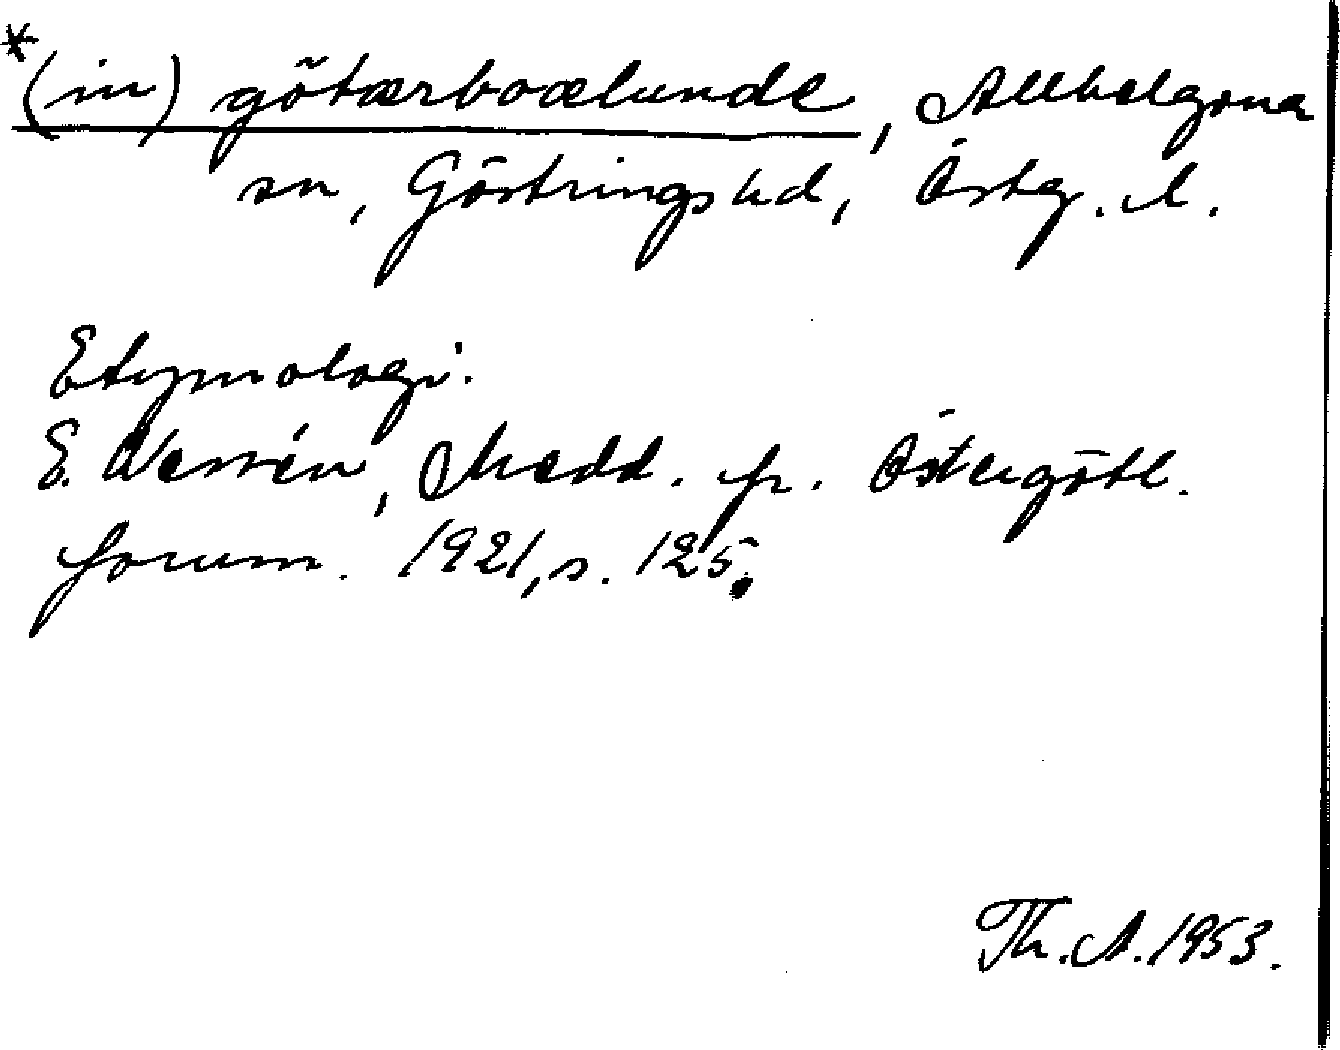 *(in) götærboælunde, Allhelgona
sn, Göstrings hd, Östg. l.
Etymologi.
E. Wessén, Medd. fr. Östergötl.
fornm. 1921, s. 125.
Th. A. 1953.